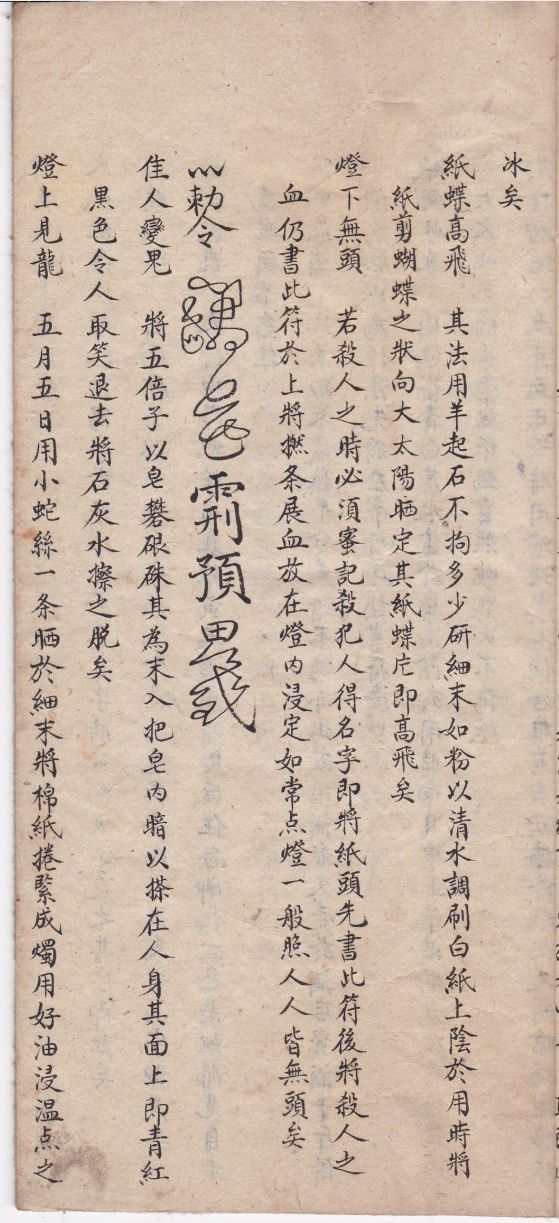 冰矣
紙蝶高飛　其法用羊起石不拘多少研細末如粉以清水調刷白紙上陰於用時將
紙剪蝴蝶之狀向大太陽晒定其紙蝶庀即高飛矣
燈下無頭　若殺人之時必湏蜜記殺犯人得名字即將紙頭先書此符後將殺人之
血仍書此符於上將撚条展血放在燈内浸定如常点燈一般照人人皆無頭矣
敕令
佳人變鬼　將五倍子以皂礬硍硃其為末入把皂内暗以搽在人身其面上即青紅
黒色令人取笑退去將石灰水擦之脱矣
燈上見龍　五月五日用小蛇絲一条晒於細末將棉紙捲緊成燭用好油浸温点之